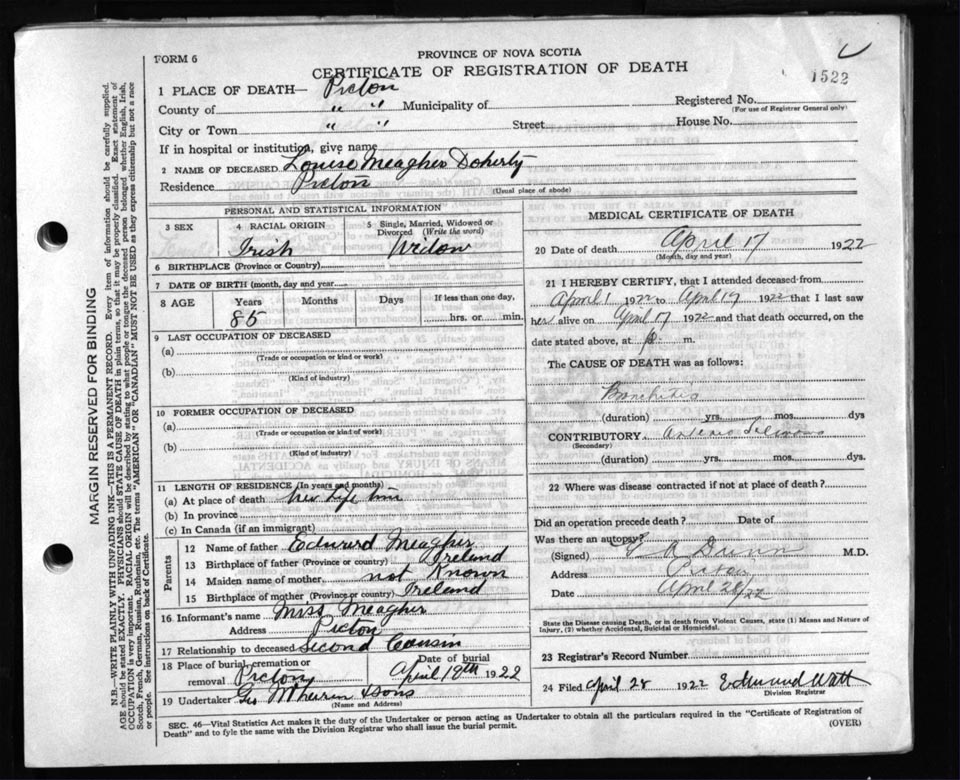 FORM 6
PROVINCE OF NOVA SCOTIA
CERTIFICATE OF REGISTRATION OF DEATH
1522
1 PLACE OF DEATH— Picton
County of " " Municipality of
Registered No.
(For use of Registrar General only)
City or Town " " Street House No.
If in hospital or institution, give name
2 NAME OF DECEASED Louise Meagher Doherty
Residence Picton
(Usual place of abode)
PERSONAL AND STATISTICAL INFORMATION
3 SEX
4 RACIAL ORIGIN
5 Single, Married, Widowed or Divorced (Write the word)
Irish Widow
6 BIRTHPLACE (Province or Country)
7 DATE OF BIRTH (month, day and year)
8 AGE Years Months Days If less than one day,
85 hrs. or min.
9 LAST OCCUPATION OF DECEASED
(a)
(Trade or occupation or kind or work)
(b)
(Kind of industry)
10 FORMER OCCUPATION OF DECEASED
(a)
(Trade or occupation or kind of work)
(b)
(Kind of industry)
11 LENGTH OF RESIDENCE (In years and months)
(a) At place of death her Life time
(b) In province
(c) In Canada (if an immigrant)
Parents
12 Name of father Edward Meagher
13 Birthplace of father (Province or country) Ireland
14 Maiden name of mother not Known
15 Birthplace of mother (Province or country) Ireland
16 Informant's name Miss Meagher
Address Picton
17 Relationship to deceased Second Cousin
18 Place of burial, cremation or removal Picton
Date of burial
April 19th 1922
19 Undertaker Geo & Sons
(Name and Address)
MEDICAL CERTIFICATE OF DEATH
20 Date of death April 17 1922
(Month, day and year)
21 I HEREBY CERTIFY, that I attended deceased from
April 1 1922 to April 17 1922 that I last saw
her alive on April 17 1922 and that death occurred, on
date stated above, at p. m.
The CAUSE OF DEATH was as follows:
Bronchitis
(duration) yrs. mos. dys
CONTRIBUTORY Arterio Sclerosis
(Secondary)
(duration) yrs. mos. dys.
22 Where was disease contracted if not at place of death?
Did an operation precede death? Date of
Was there an autopsy?
(Signed) Dunn M.D.
Address Pictou
Date April 20/22
State the Disease causing Death, or in death from Violent Causes, state (1) Means and Nature of
Injury, (2) whether Accidental, Suicidal or Homicidal.
23 Registrar's Record Number
24 Filed April 28 1922 Edmund Watt
Division Registrar
SEC. 46—Vital Statistics Act makes it the duty of the Undertaker or person acting as Undertaker to obtain all the particulars required in the "Certificate of Registration of
Death" and to fyle the same with the Division Registrar who shall issue the burial permit.
(OVER)
MARGIN RESERVED FOR BINDING
N.B.—WRITE PLAINLY WITH UNFADING INK—THIS IS A PERMANENT RECORD. Every item of information should be carefully supplied.
AGE should be stated EXACTLY. PHYSICIANS should STATE CAUSE OF DEATH in plain terms, so that it may be properly classified. Exact statement of
OCCUPATION is very important. RACIAL ORIGIN will be described by stating to what people or tongue the deceased person belonged whether English, Irish,
Scotch, French, German, Russian, Ruthenian, etc. The terms "AMERICAN" OR "CANADIAN" MUST NOT BE USED as they express citizenship but not a race
or people. See instructions on back of Certificate.